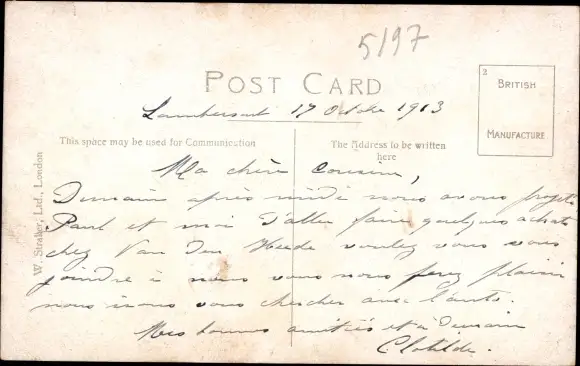 5197
POST CARD
2
BRITISH
MANUFACTURE
Lambersart 17 Octobre 1913
This space may be used for Communication
The Address to be written
here
W. Straker, Ltd., London
Ma chère Cousine,
Demain après midi nous avons projeté
Paul et moi d'aller faire quelques achats
chez Van Den Heede voulez vous vous
joindre à nous vous nous ferez plaisir
nous irons vous chercher avec l'auto.
Mes bonnes amitiés et à Demain
Clotilde.